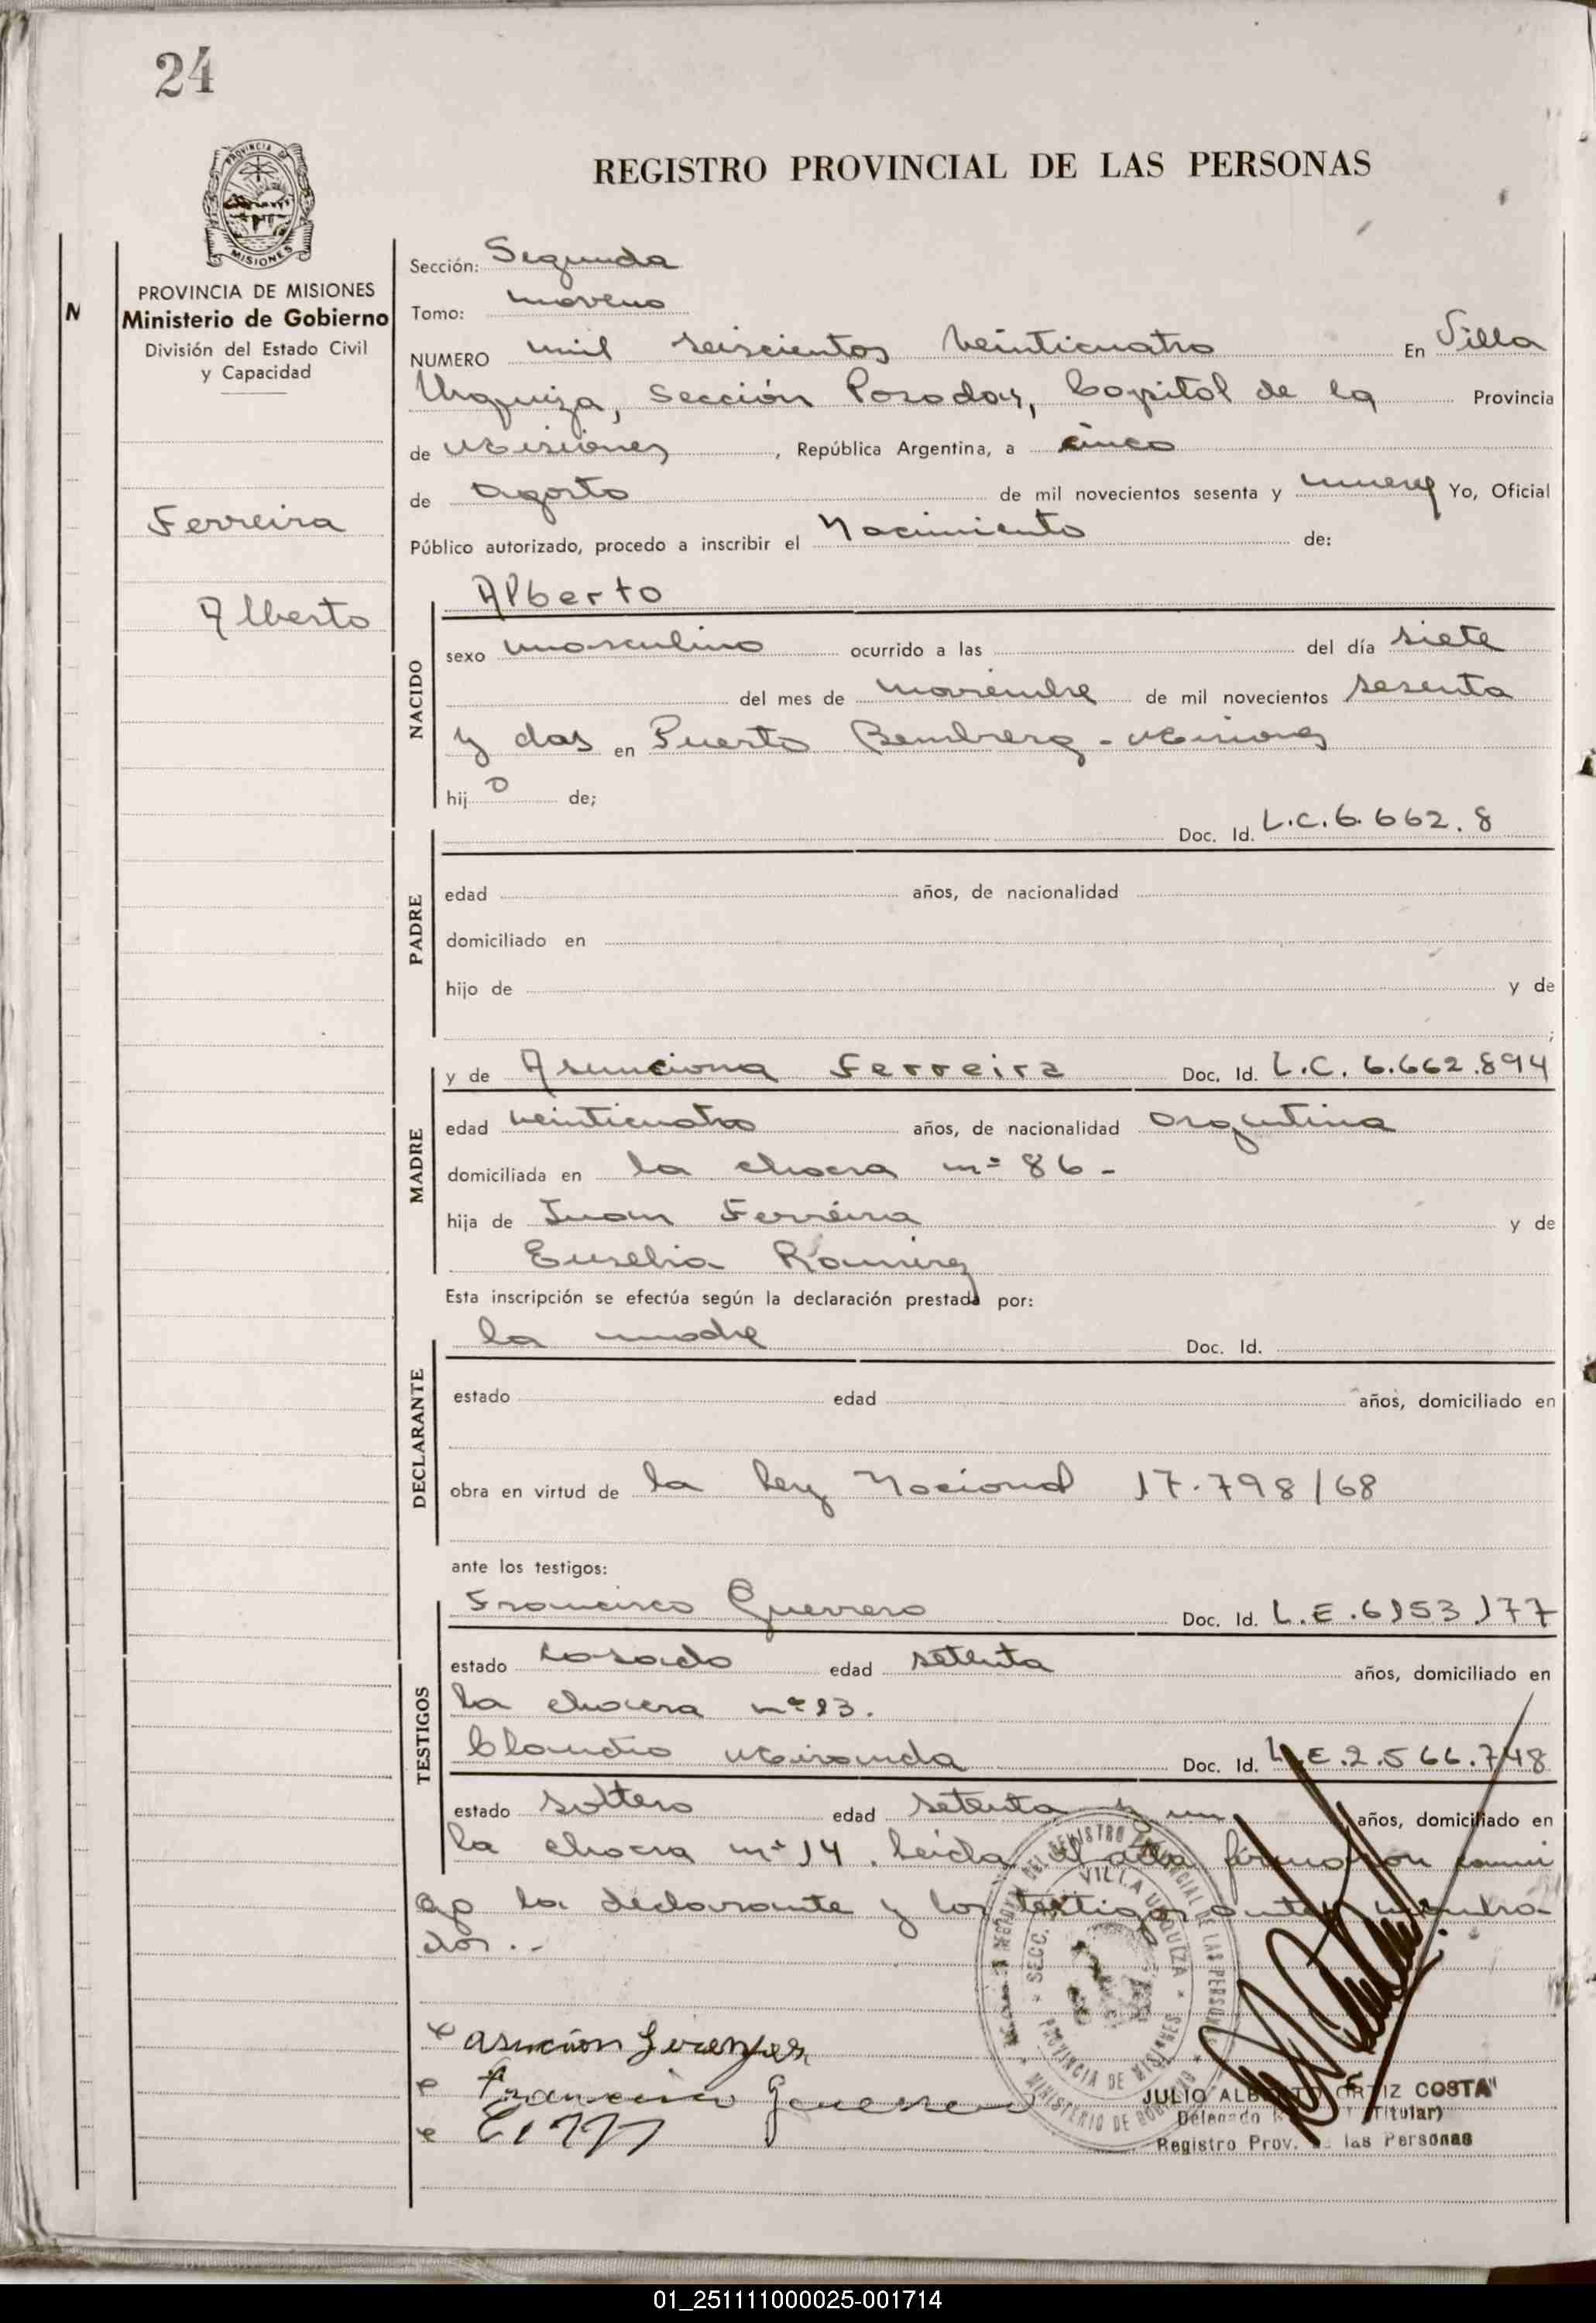 24
PROVINCIA DE
MISIONES
PROVINCIA DE MISIONES
Ministerio de Gobierno
División del Estado Civil
y Capacidad
N
Ferreira
Alberto
REGISTRO PROVINCIAL DE LAS PERSONAS
Sección: Segunda
Tomo: noveno
NUMERO mil seiscientos veinticuatro En Villa
Urquiza, Sección Posadas, Capital de la Provincia
de Misiones, República Argentina, a cinco
de agosto de mil novecientos sesenta y nueve Yo, Oficial
Público autorizado, procedo a inscribir el Nacimiento de:
NACIDO
Alberto
sexo masculino ocurrido a las del día siete
del mes de noviembre de mil novecientos sesenta
y dos en Puerto Bemberg - Misiones
hij o de;
PADRE
Doc. Id. L.C. 6.662.8
edad años, de nacionalidad
domiciliado en
hijo de y de
;
MADRE
y de Asunciona Ferreira Doc. Id. L.C. 6.662.894
edad veinticuatro años, de nacionalidad argentina
domiciliada en la chacra nº 86 -
hija de Juan Ferreira y de
Eusebia Ramirez
Esta inscripción se efectúa según la declaración prestada por:
DECLARANTE
la madre Doc. Id.
estado edad años, domiciliado en
obra en virtud de la ley Nacional 17.798/68
ante los testigos:
TESTIGOS
Francisco Guerrero Doc. Id. L.E. 6153.177
estado casado edad setenta años, domiciliado en
la chacra nº 23.
Claudio Miranda Doc. Id. L.E. 2.566.748
estado soltero edad setenta y un años, domiciliado en
la chacra nº 14. Leída el acta firmaron conmi
go la declarante y los testigos antes nombra-
dos. -
Francisco Guerrero
SECC. VILLA URQUIZA
PROVINCIA DE MISIONES
MINISTERIO DE GOBIERNO
JULIO ALBERTO ORTIZ COSTA
Delegado (Titular)
Registro Prov. de las Personas
01_251111000025-001714